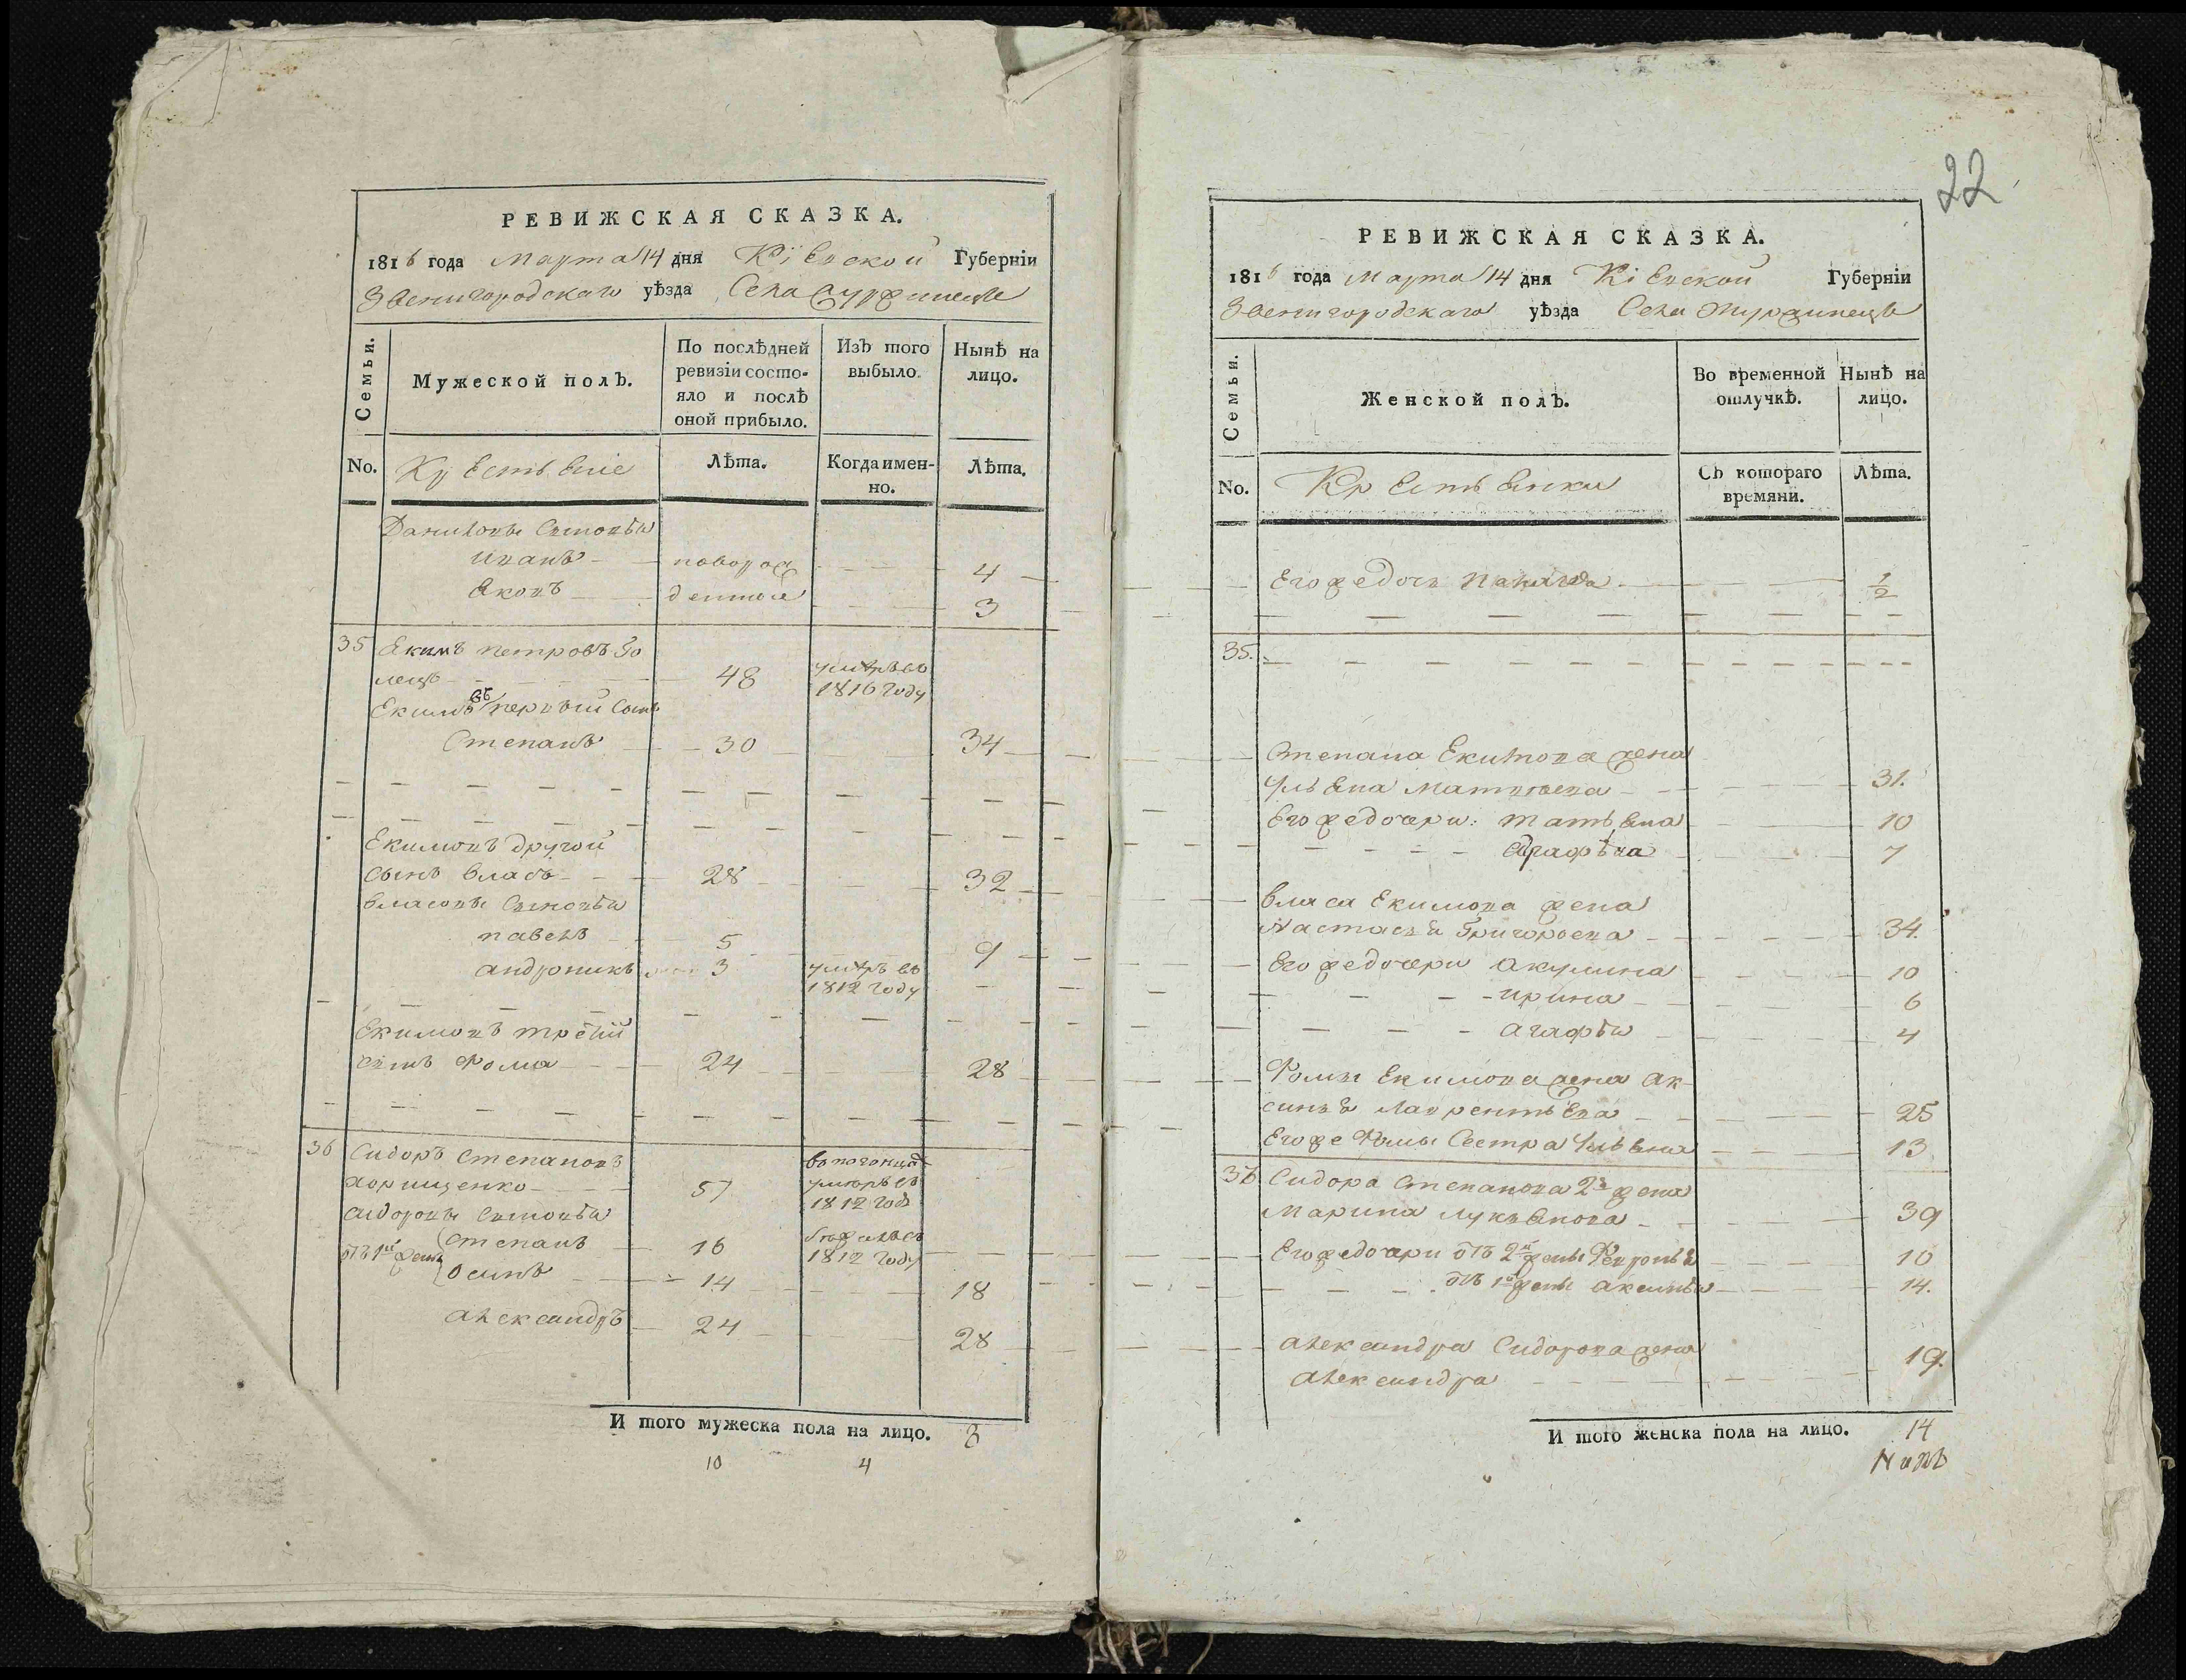 РЕВИЖСКАЯ СКАЗКА.
1816 года Марта 14 дня Кіевской Губерніи
Звенигородскаго уѣзда Села
Семьи.
Мужеской полъ.
По послѣдней ревизіи состо-
яло и послѣ
оной прибыло.
Изъ того выбыло.
Нынѣ на лицо.
No.
Крестьяне
Лѣта.
Когда имен-
но.
Лѣта.
Даниловы сыновья
Иванъ новорож 4
Яковъ денные 3
35 Екимъ Петровъ Го
лецъ 48 умеръ въ
1816 году
Екимовъ первый сынъ
Степанъ 30 34
Екимовъ другой
сынъ Власъ 28 32
Власовы сыновья
Павелъ 5 9
Андроникъ 3 умеръ въ
1812 году
Екимовъ третій
сынъ Фома 24 28
36 Сидоръ Степановъ
57 умеръ въ
1812 годѣ
Сидоровы сыновья
отъ 1й жены Степанъ 16
1812 году
Осипъ 14 18
Александръ 24 28
И того мужеска пола на лицо. 8
10 4
22
РЕВИЖСКАЯ СКАЗКА.
1816 года Марта 14 дня Кіевской Губерніи
Звенигородскаго уѣзда Села Журжинецъ
Семьи.
Женской полъ.
Во временной отлучкѣ.
Нынѣ на лицо.
No.
Крестьянки
Съ котораго
времяни.
Лѣта.
Его же дочь 1/2
35.
Степана Екимова жена
Ульяна Матвѣева 31.
Его же дочери: Татьяна 10
Агафья 7
Власа Екимова жена
Настасья Григорьева 34.
Его же дочери Акулина 10
Ирина 6
Агафья 4
Фомы Екимова жена Ак
синья Лаврентьева 25
Его же Фомы сестра Ульяна 13
36 Сидора Степанова 2я жена
Марина Лукьянова 39
Его же дочери отъ 2й жены Февронья 10
отъ 1й жены Аксинья 14.
Александра Сидорова жена
Александра 19.
И того женска пола на лицо. 14